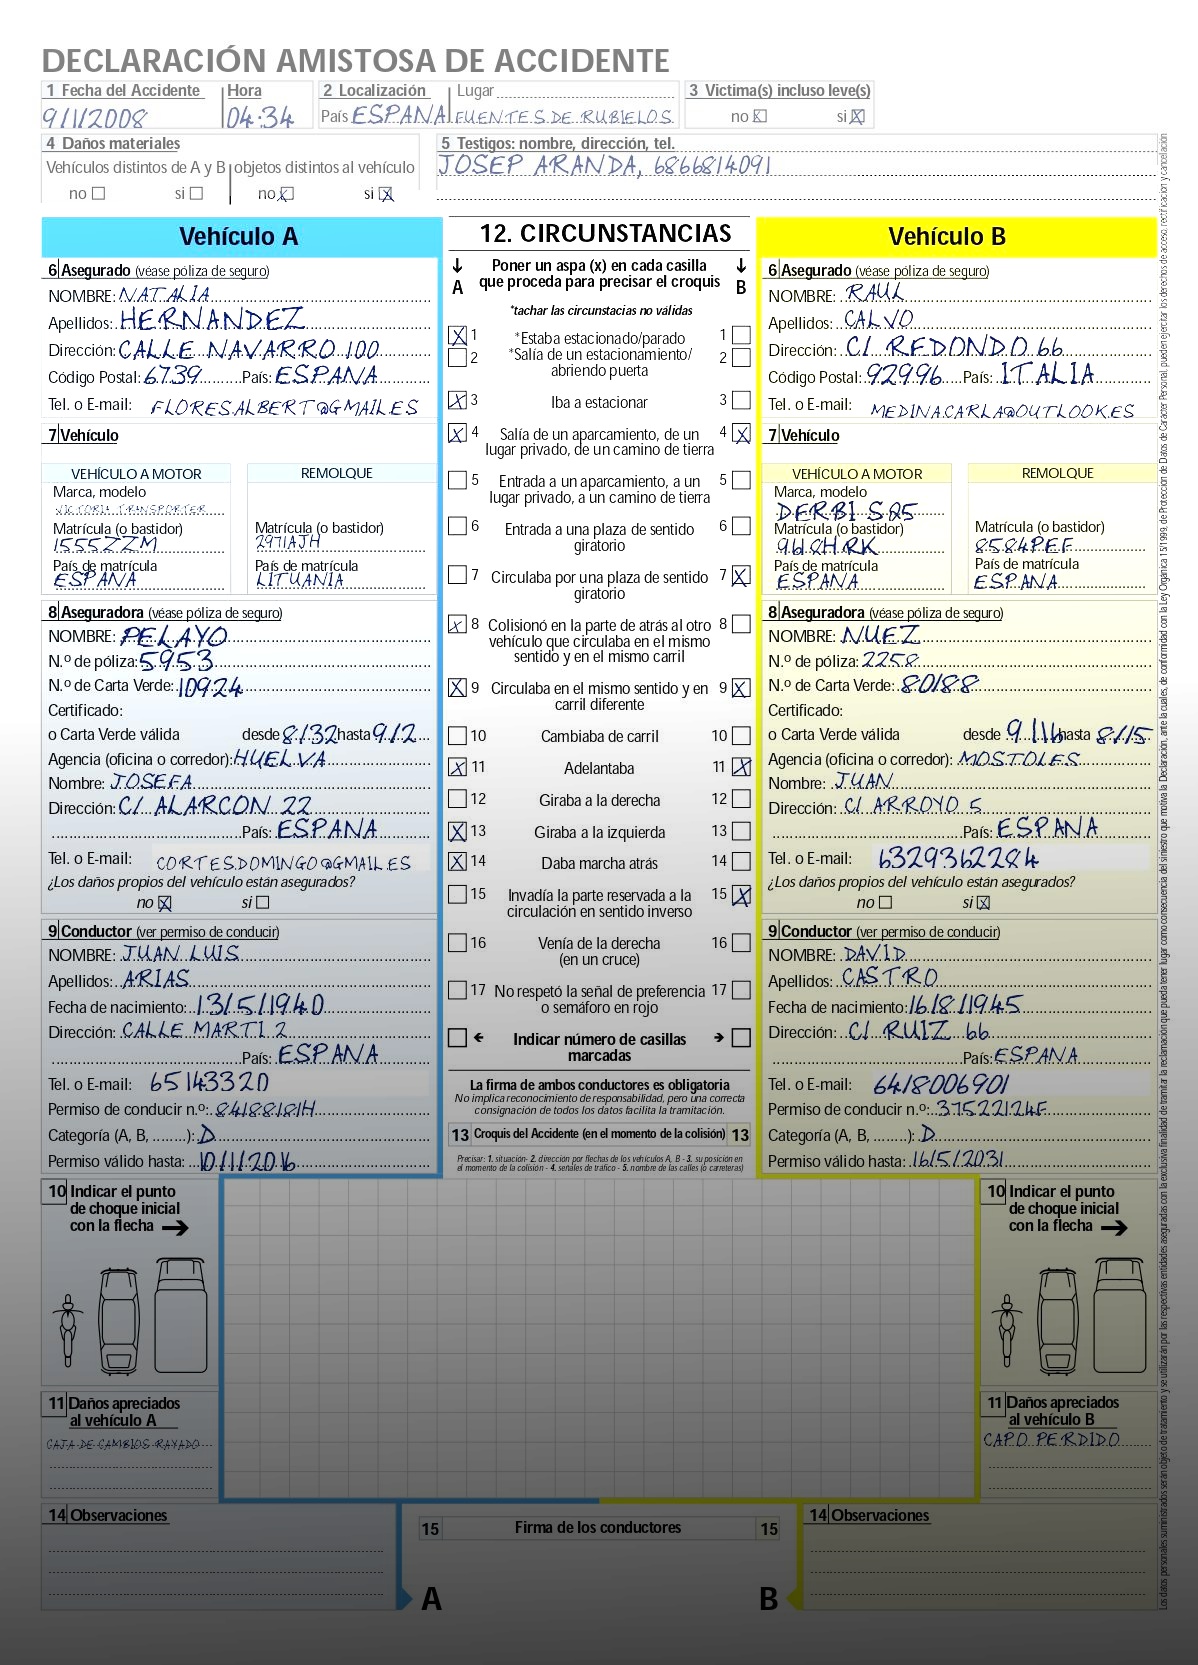 DECLARACIÓN AMISTOSA DE ACCIDENTE
1 Fecha del Accidente Hora 2 Localización Lugar 3 Victima(s) incluso leve(s)
9/1/2008 04:34 País ESPAÑA FUENTES DE RUBIELOS no si
4 Daños materiales
Vehículos distintos de A y B objetos distintos al vehículo
no si no si
5 Testigos: nombre, dirección, tel.
JOSEP ARANDA, 6866814091
Vehículo A
6 Asegurado (véase póliza de seguro)
NOMBRE: NATALIA
Apellidos: HERNANDEZ
Dirección: CALLE NAVARRO 100
Código Postal: 6739 País: ESPAÑA
Tel. o E-mail: FLORESALBERT@GMAIL.ES
7 Vehículo
VEHÍCULO A MOTOR REMOLQUE
Marca, modelo
VICTORIA TRANSPORTER
Matrícula (o bastidor) Matrícula (o bastidor)
1555ZZM 2971AJH
País de matrícula País de matrícula
ESPAÑA LITUANIA
8 Aseguradora (véase póliza de seguro)
NOMBRE: PELAYO
N.º de póliza: 5953
N.º de Carta Verde: 10924
Certificado:
o Carta Verde válida desde 8/32 hasta 9/2
Agencia (oficina o corredor): HUELVA
Nombre: JOSEFA
Dirección: C/ ALARCON 22
País: ESPAÑA
Tel. o E-mail: CORTESDOMINGO@GMAIL.ES
¿Los daños propios del vehículo están asegurados?
no si
9 Conductor (ver permiso de conducir)
NOMBRE: JUAN LUIS
Apellidos: ARIAS
Fecha de nacimiento: 13/5/1940
Dirección: CALLE MARTI 2
País: ESPAÑA
Tel. o E-mail: 65143320
Permiso de conducir n.º: 84188181H
Categoría (A, B, ........): D
Permiso válido hasta: 10/1/2016
12. CIRCUNSTANCIAS
A Poner un aspa (x) en cada casilla que proceda para precisar el croquis B
*tachar las circunstacias no válidas
1 *Estaba estacionado/parado 1
2 *Salía de un estacionamiento/ abriendo puerta 2
3 Iba a estacionar 3
4 Salía de un aparcamiento, de un lugar privado, de un camino de tierra 4
5 Entrada a un aparcamiento, a un lugar privado, a un camino de tierra 5
6 Entrada a una plaza de sentido giratorio 6
7 Circulaba por una plaza de sentido giratorio 7
8 Colisionó en la parte de atrás al otro vehículo que circulaba en el mismo sentido y en el mismo carril 8
9 Circulaba en el mismo sentido y en carril diferente 9
10 Cambiaba de carril 10
11 Adelantaba 11
12 Giraba a la derecha 12
13 Giraba a la izquierda 13
14 Daba marcha atrás 14
15 Invadía la parte reservada a la circulación en sentido inverso 15
16 Venía de la derecha (en un cruce) 16
17 No respetó la señal de preferencia o semáforo en rojo 17
Indicar número de casillas marcadas
La firma de ambos conductores es obligatoria
No implica reconocimiento de responsabilidad, pero una correcta consignación de todos los datos facilita la tramitación.
13 Croquis del Accidente (en el momento de la colisión) 13
Precisar: 1. situación- 2. dirección por flechas de los vehículos A, B - 3. su posición en el momento de la colisión - 4. señales de tráfico - 5. nombre de las calles (o carreteras)
Vehículo B
6 Asegurado (véase póliza de seguro)
NOMBRE: RAUL
Apellidos: CALVO
Dirección: C/ REDONDO 66
Código Postal: 92996 País: ITALIA
Tel. o E-mail: MEDINA.CARLA@OUTLOOK.ES
7 Vehículo
VEHÍCULO A MOTOR REMOLQUE
Marca, modelo
DERBI SQ5
Matrícula (o bastidor) Matrícula (o bastidor)
9618HRK 8584PEF
País de matrícula País de matrícula
ESPAÑA ESPAÑA
8 Aseguradora (véase póliza de seguro)
NOMBRE: NUEZ
N.º de póliza: 2258
N.º de Carta Verde: 80188
Certificado:
o Carta Verde válida desde 9/16 hasta 8/15
Agencia (oficina o corredor): MOSTOLES
Nombre: JUAN
Dirección: C/ ARROYO 5
País: ESPAÑA
Tel. o E-mail: 6329362284
¿Los daños propios del vehículo están asegurados?
no si
9 Conductor (ver permiso de conducir)
NOMBRE: DAVID
Apellidos: CASTRO
Fecha de nacimiento: 16/8/1945
Dirección: C/ RUIZ 66
País: ESPAÑA
Tel. o E-mail: 6418006901
Permiso de conducir n.º: 37522124F
Categoría (A, B, ........): D
Permiso válido hasta: 16/5/2031
10 Indicar el punto de choque inicial con la flecha
10 Indicar el punto de choque inicial con la flecha
11 Daños apreciados al vehículo A
CAJA DE CAMBIOS RAYADO
11 Daños apreciados al vehículo B
CAPO PERDIDO
14 Observaciones
15 Firma de los conductores 15
A B
14 Observaciones